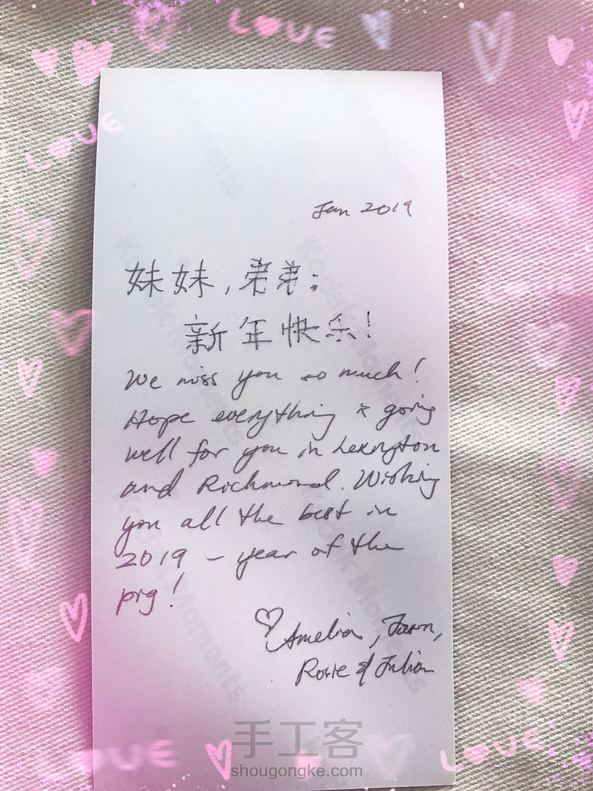 LOVE
LOVE
Jan 2019
妹妹,弟弟:
新年快乐!
We miss you so much!
Hope everything is going
well for you in Lexington
and Richmond. Wishing
you all the best in
2019 - year of the
pig!
♡ Amelia, Jason,
Rosie & Julian
Kodak Moments
手工客
shougongke.com
LOVE
LOVE